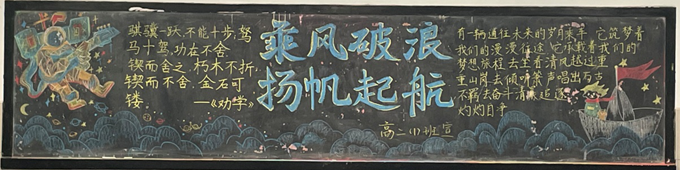 骐骥一跃,不能十步,驽
马十驾,功在不舍
锲而舍之,朽木不折,
锲而不舍,金石可
镂。——《劝学》
乘风破浪
扬帆起航
高二(1)班宣
有一辆通往未来的岁月乘车 它筑梦着
我们的漫漫征途 它承载着我们的
梦想旅程去至看清风越过重
重山岸去倾听萧声唱出万古
不羁去奋斗清
灼灼目争